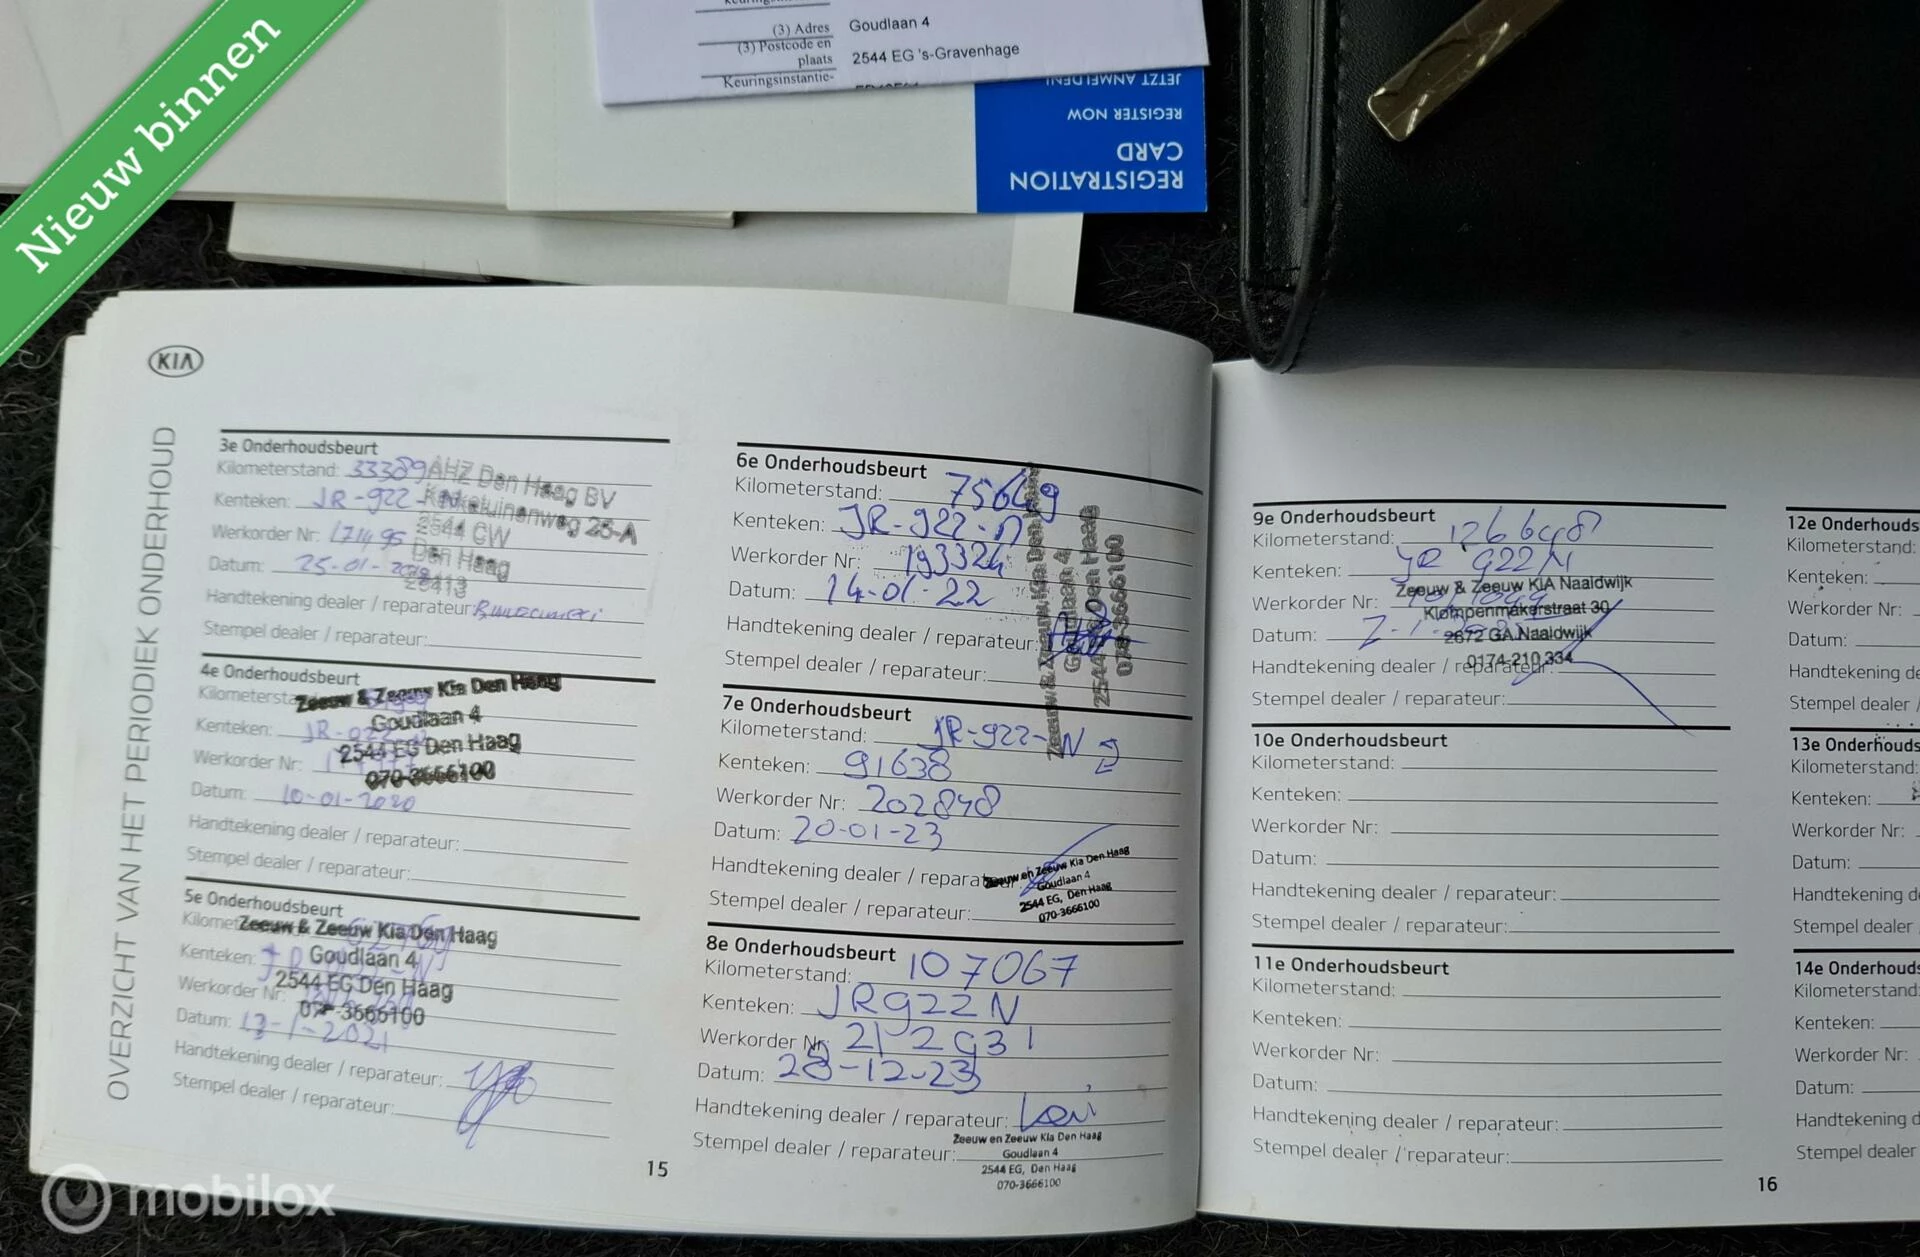 Nieuw binnen
(3) Adres Goudlaan 4
(3) Postcode en plaats 2544 EG 's-Gravenhage
Keuringsinstantie-
JETZT ANMELDEN!
REGISTER NOW
REGISTRATION CARD
KIA
OVERZICHT VAN HET PERIODIEK ONDERHOUD
3e Onderhoudsbeurt
Kilometerstand: 33389
Kenteken: JR-922-N
Werkorder Nr: 171495
Datum: 25-01-
Handtekening dealer / reparateur:
Stempel dealer / reparateur:
AHZ Den Haag BV
Kerketuinenweg 25-A
2544 CW
Den Haag
4e Onderhoudsbeurt
Kenteken: JR-922-N
Werkorder Nr:
Datum: 10-01-2020
Handtekening dealer / reparateur:
Stempel dealer / reparateur:
Zeeuw & Zeeuw Kia Den Haag
Goudlaan 4
2544 EG Den Haag
070-3666100
5e Onderhoudsbeurt
Kenteken:
Werkorder Nr:
Datum: 13-1-2021
Handtekening dealer / reparateur:
Stempel dealer / reparateur:
Zeeuw & Zeeuw Kia Den Haag
Goudlaan 4
2544 EG Den Haag
070-3666100
15
6e Onderhoudsbeurt
Kilometerstand: 75649
Kenteken: JR-922-N
Werkorder Nr: 193324
Datum: 14-01-22
Handtekening dealer / reparateur:
Stempel dealer / reparateur:
Zeeuw & Zeeuw Kia Den Haag
Goudlaan 4
2544 EG Den Haag
070-3666100
7e Onderhoudsbeurt
Kilometerstand: JR-922-N
Kenteken: 91638
Werkorder Nr: 202848
Datum: 20-01-23
Handtekening dealer / reparateur:
Stempel dealer / reparateur:
Zeeuw en Zeeuw Kia Den Haag
Goudlaan 4
2544 EG, Den Haag
070-3666100
8e Onderhoudsbeurt
Kilometerstand: 107067
Kenteken: JR922N
Werkorder Nr: 212931
Datum: 28-12-23
Handtekening dealer / reparateur:
Stempel dealer / reparateur:
Zeeuw en Zeeuw Kia Den Haag
Goudlaan 4
2544 EG, Den Haag
070-3666100
9e Onderhoudsbeurt
Kilometerstand: 126698
Kenteken: JR 922 N
Werkorder Nr:
Datum:
Handtekening dealer / reparateur:
Stempel dealer / reparateur:
Zeeuw & Zeeuw KIA Naaldwijk
Klompenmakerstraat 30
2672 GA Naaldwijk
0174-210 334
10e Onderhoudsbeurt
Kilometerstand:
Kenteken:
Werkorder Nr:
Datum:
Handtekening dealer / reparateur:
Stempel dealer / reparateur:
11e Onderhoudsbeurt
Kilometerstand:
Kenteken:
Werkorder Nr:
Datum:
Handtekening dealer / reparateur:
Stempel dealer / reparateur:
16
12e Onderhouds
Kilometerstand:
Kenteken:
Werkorder Nr:
Datum:
Handtekening de
Stempel dealer /
13e Onderhouds
Kilometerstand:
Kenteken:
Werkorder Nr:
Datum:
Handtekening d
Stempel dealer
14e Onderhouds
Kilometerstand:
Kenteken:
Werkorder Nr:
Datum:
Handtekening d
Stempel dealer
mobilox